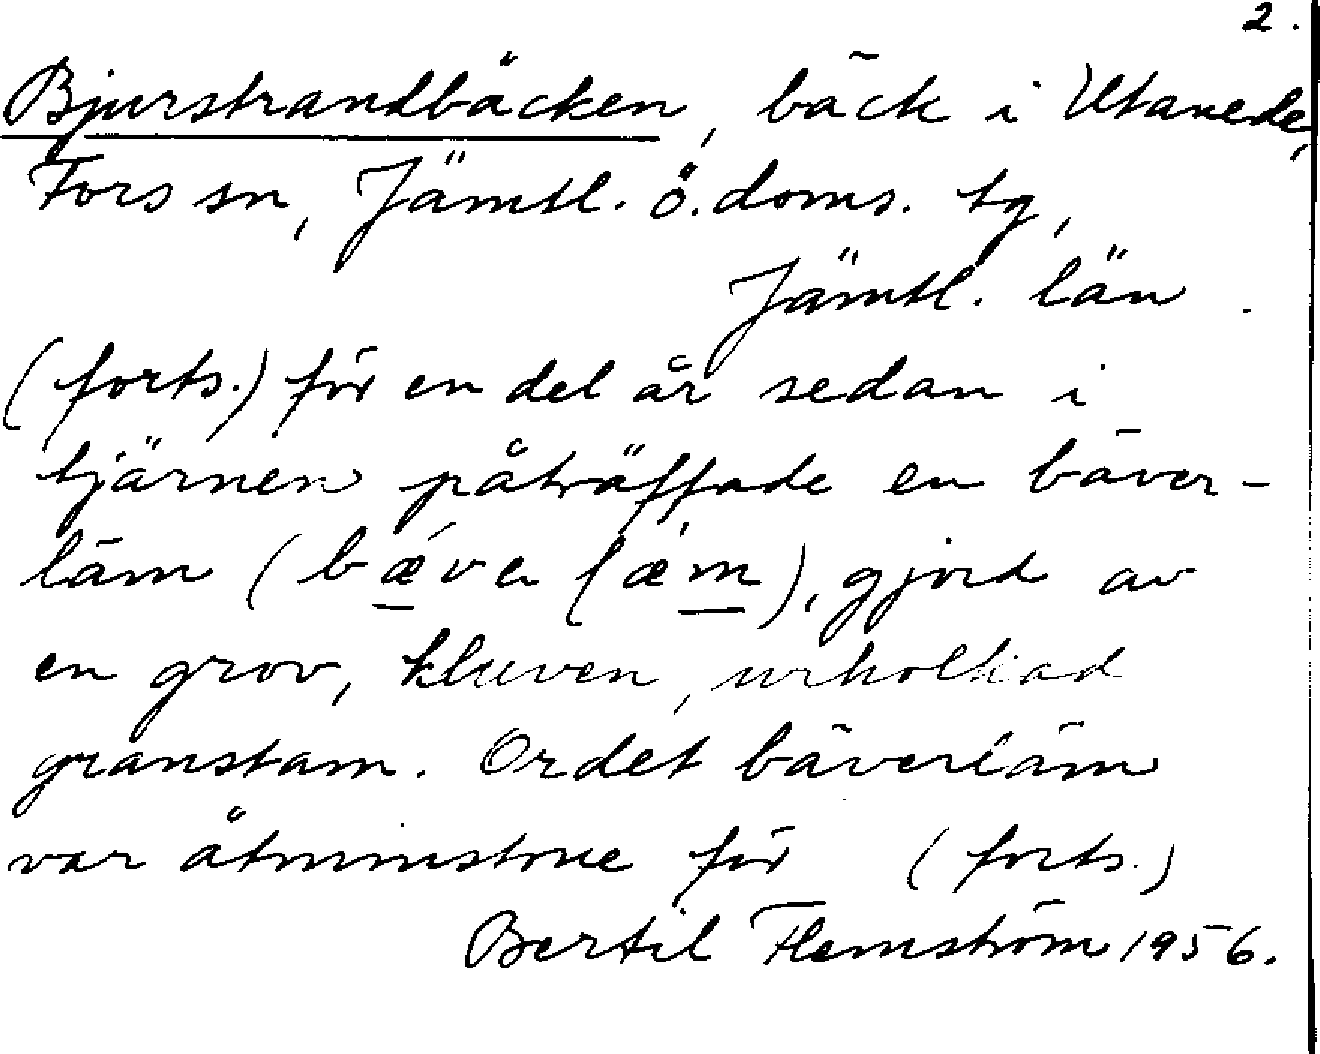 2.
Bjurstrandbäcken, bäck i Utanede,
Fors sn, Jämtl. ö. doms. tg,
Jämtl. län.
(forts.) för en del år sedan i
tjärnen påträffade en bäver-
läm (bǽver lǽm), gjord av
en grov, kluven, urholkad
granstam. Ordet bäverläm
var åtminstone för (forts.)
Bertil Flemström 1956.